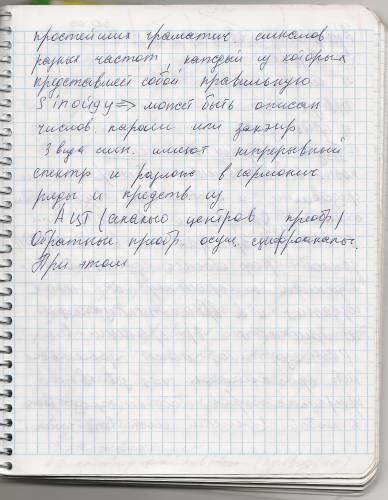 простейших граматич сигналов
разных частот, каждый из которых
представляет собой правильную
Sinоиду => может быть описан
числов парами или
3 вида сигн. имеют непрерывный
спектр и разлож в гармонич
ряды и предств. из.
АЦП (аналого центров преобр.)
Обратный преобр. осущ. цифроаналы.
При этом